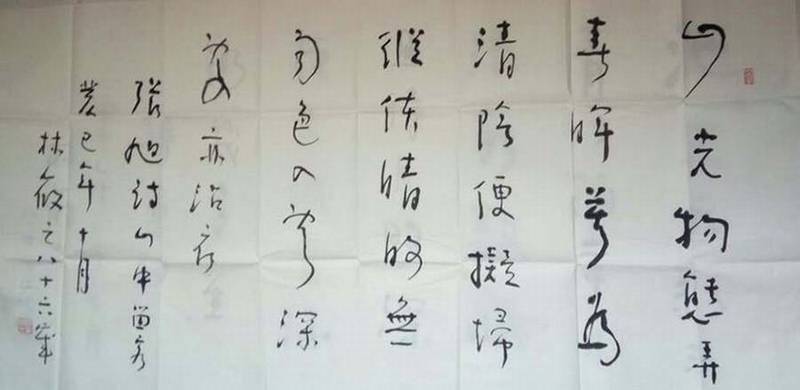 山光物態弄
春暉莫為
清陰便擬歸
縱使晴明無
雨色入雲深
處亦沾衣
張旭詩山中留客
癸巳年十月
林筱之八十六歲